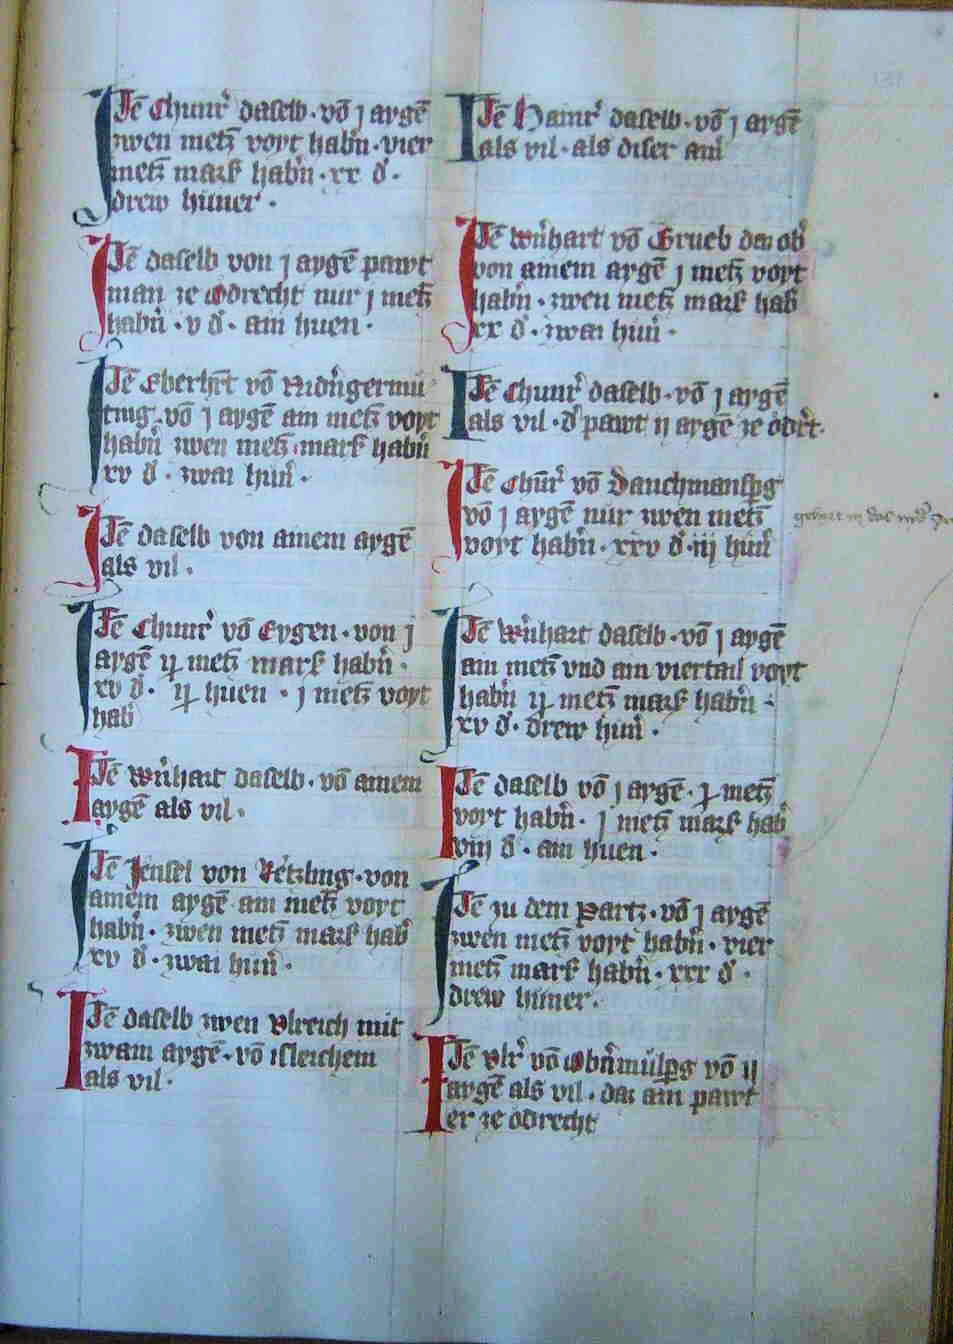 Itē Chunr̄ daselb · vō j aygē
zwen metz vogt habn̄ · vier
metz mark habn̄ · xx d̄ ·
drew huner ·
Itē daselb von j aygē pawt
man ze ödrecht nur j metz
habn̄ · v d̄ · ain huen ·
Itē Eberhēt vō Nidn̄germü-
ting · vō j aygē ain metz vogt
habn̄ zwen metz mark habn̄
xv d̄ · zwai hun̄ ·
Itē daselb von ainem aygē
als vil ·
Itē Chunr̄ vō Eygen · von j
aygē metz mark habn̄ ·
xv d̄ · huen · j metz vogt
hab̄
Itē Wn̄hart daselb · vō ainem
aygē als vil ·
Itē Jensel von Retzling · von
ainem aygē ain metz vogt
habn̄ · zwen metz mark hab̄
xv d̄ · zwai hun̄ ·
Itē daselb zwen Vlreich mit
zwain aygē · vō isleichem
als vil ·
Itē Hainr̄ daselb · vō j aygē
als vil · als diser ain
Itē Wn̄hart vō Grueb daz ob̄
von ainem aygē j metz vogt
habn̄ · zwen metz mark hab̄
xx d̄ · zwai hun̄ ·
Itē Chunr̄ daselb · vō j aygē
als vil · d̄ pawt ij aygē ze ödr̄t ·
Itē Chūr̄ vō Dauchmansp̄g
vō j aygē nur zwen metz
vogt habn̄ · xxv d̄ · iij hun̄
gehort in das
Itē Wn̄hart daselb · vō j aygē
ain metz vnd ain viertail vogt
habn̄ metz mark habn̄ ·
xv d̄ · drew hun̄ ·
Itē daselb vō j aygē · metz
vogt habn̄ · j metz mark hab̄
viij d̄ · ain huen ·
Itē zu dem Partz · vō j aygē
zwen metz vogt habn̄ · vier
metz mark habn̄ · xxx d̄ ·
drew huner ·
Itē Vlr̄ vō Obn̄mülp̄g vō ij
aygē als vil · daz ain pawt
er ze ödrecht